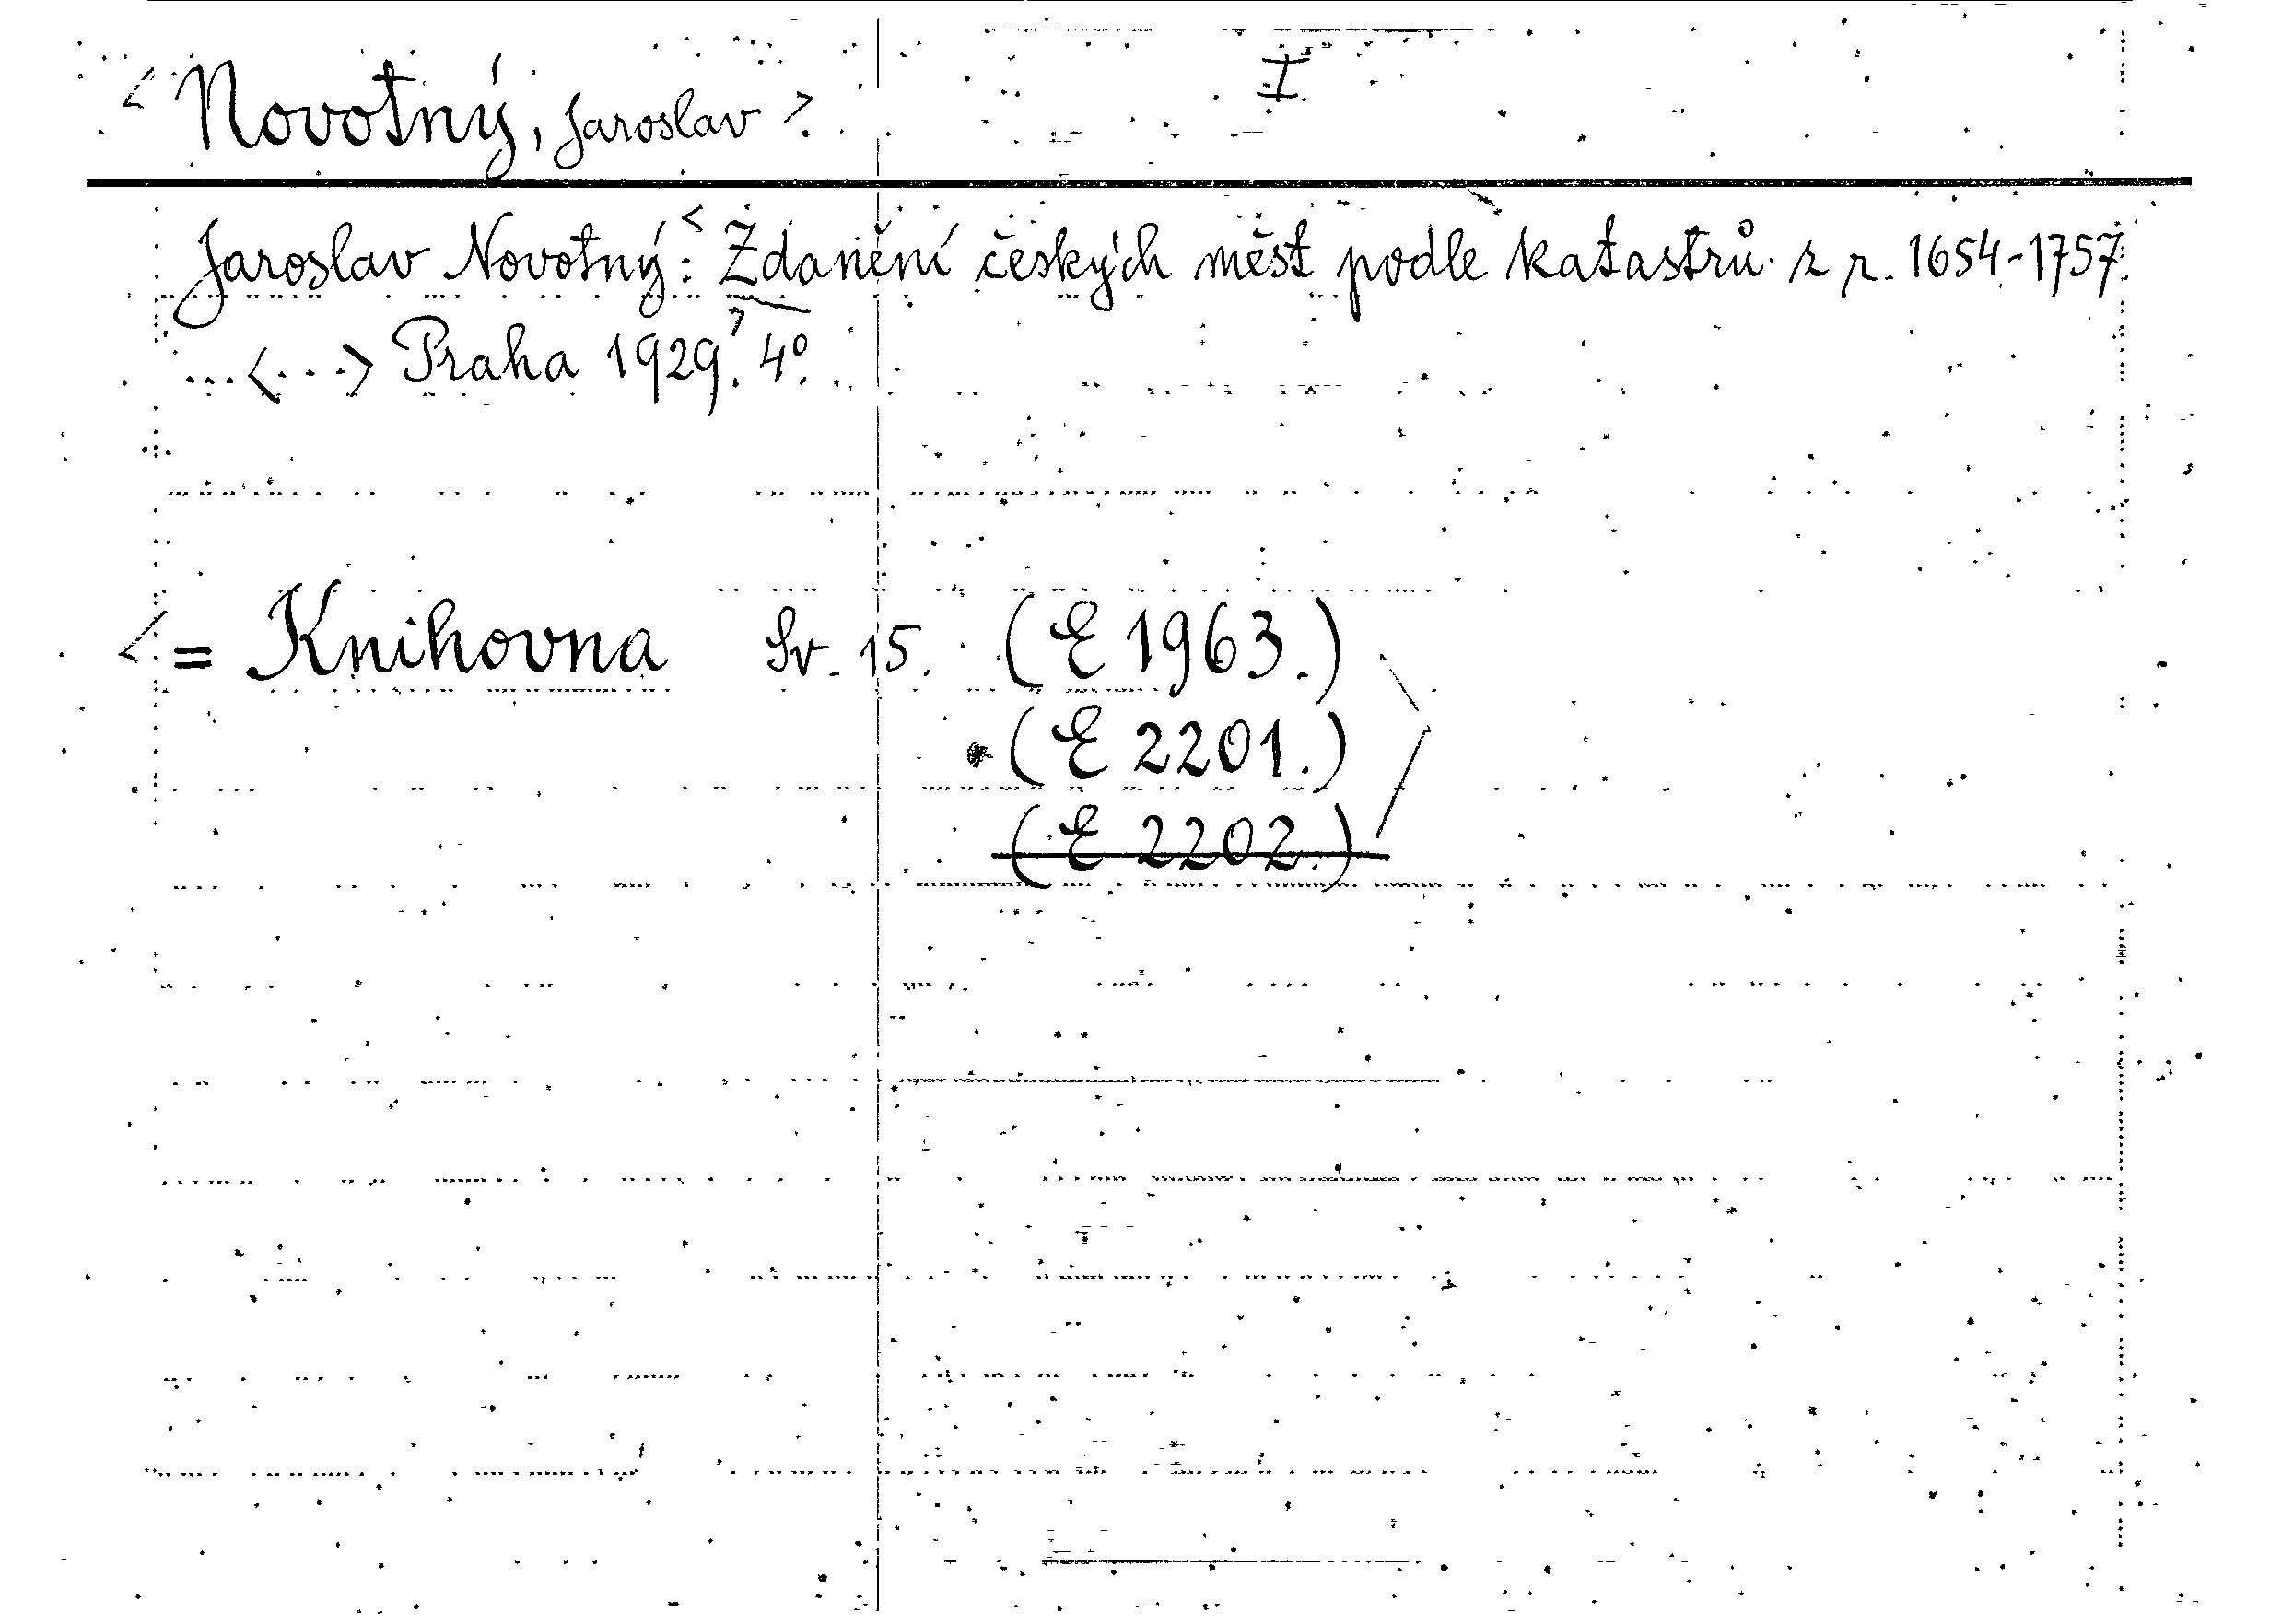 < Novotný, Jaroslav > I.
Jaroslav Novotný: <Zdanění českých měst podle katastrů z r. 1654-1757.
...<...> Praha 1929.> 4°.
<= Knihovna Sv. 15. (E 1963.)
(E 2201.)
(E 2202.)